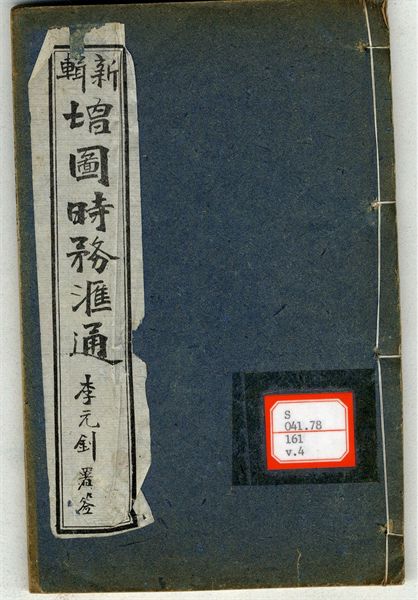 新輯
增圖時務滙通
李元釗署签
S
041.78
161
v.4